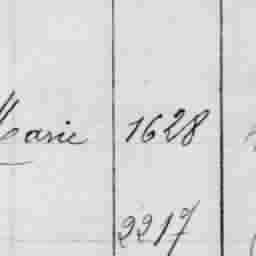 Marie 1628
2217